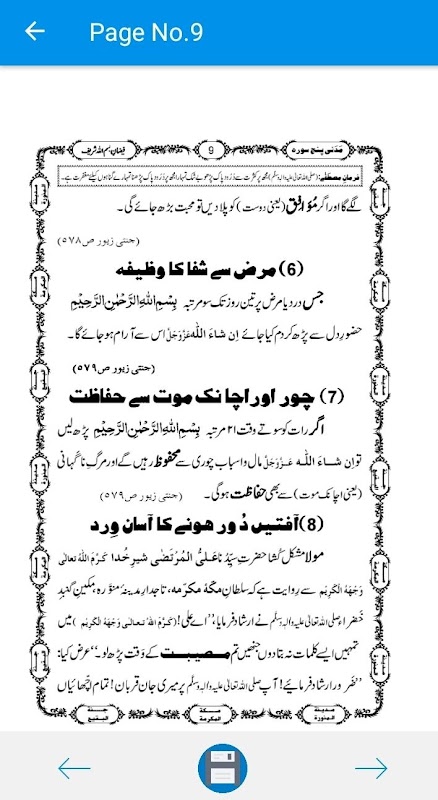 Page No.9
مَدَنی پنج سورہ
9
فیضانِ بسم اللہ شریف
فرمانِ مصطفٰے: (صلی اللہ علیہ واٰلہٖ وسلم) مجھ پر کثرت سے دُرُود پاک پڑھو بے شک تمہارا مجھ پر دُرُود پاک پڑھنا تمہارے گناہوں کیلئے مغفرت ہے۔
لگے گا اور اگر مُوافِق (یعنی دوست) کو پلا دیں تو محبت بڑھ جائے گی۔
(جنتی زیور ص۵۷۸)
(6) مرض سے شفا کا وظیفہ
جس درد یا مرض پر تین روز تک سو مرتبہ بِسْمِ اللہِ الرَّحْمٰنِ الرَّحِیْمِ
حضورِ دل سے پڑھ کر دم کیا جائے اِن شاءَ اللہ عَزَّوَجَلَّ اس سے آرام ہو جائے گا۔
(جنتی زیور ص۵۷۹)
(7) چور اور اچانک موت سے حفاظت
اگر رات کو سوتے وقت ۲۱ مرتبہ بِسْمِ اللہِ الرَّحْمٰنِ الرَّحِیْمِ پڑھ لیں
تو اِن شاءَ اللہ عَزَّوَجَلَّ مال و اسباب چوری سے محفوظ رہیں گے اور مرگِ ناگہانی
(یعنی اچانک موت) سے بھی حفاظت ہوگی۔ (جنتی زیور ص۵۷۹)
(8) آفتیں دُور ہونے کا آسان وِرد
مولا مشکل کُشا حضرتِ سیِّدُنا علیُّ المُرتَضٰی شیرِ خُدا کَرَّمَ اللہُ تعالٰی
وَجْہَہُ الْکَرِیْم سے رِوایت ہے کہ سلطانِ مکّۂ مکرمہ، تاجدارِ مدینۂ منوّرہ، مکینِ گنبدِ
خَضرا صلی اللہ تعالیٰ علیہ واٰلہٖ وسلَّم نے ارشاد فرمایا، ’’اے علی! (کَرَّمَ اللہُ تعالٰی وَجْہَہُ الْکَرِیْم) میں
تمہیں ایسے کلمات نہ بتا دوں جنھیں تم مصیبت کے وَقت پڑھ لو۔‘‘ عرض کیا:
’’ضَرور ارشاد فرمائیے! آپ صلی اللہ تعالیٰ علیہ واٰلہٖ وسلَّم پر میری جان قربان! تمام اچّھائیاں
مدينة المنورة
مكة المكرمة
جنة البقيع